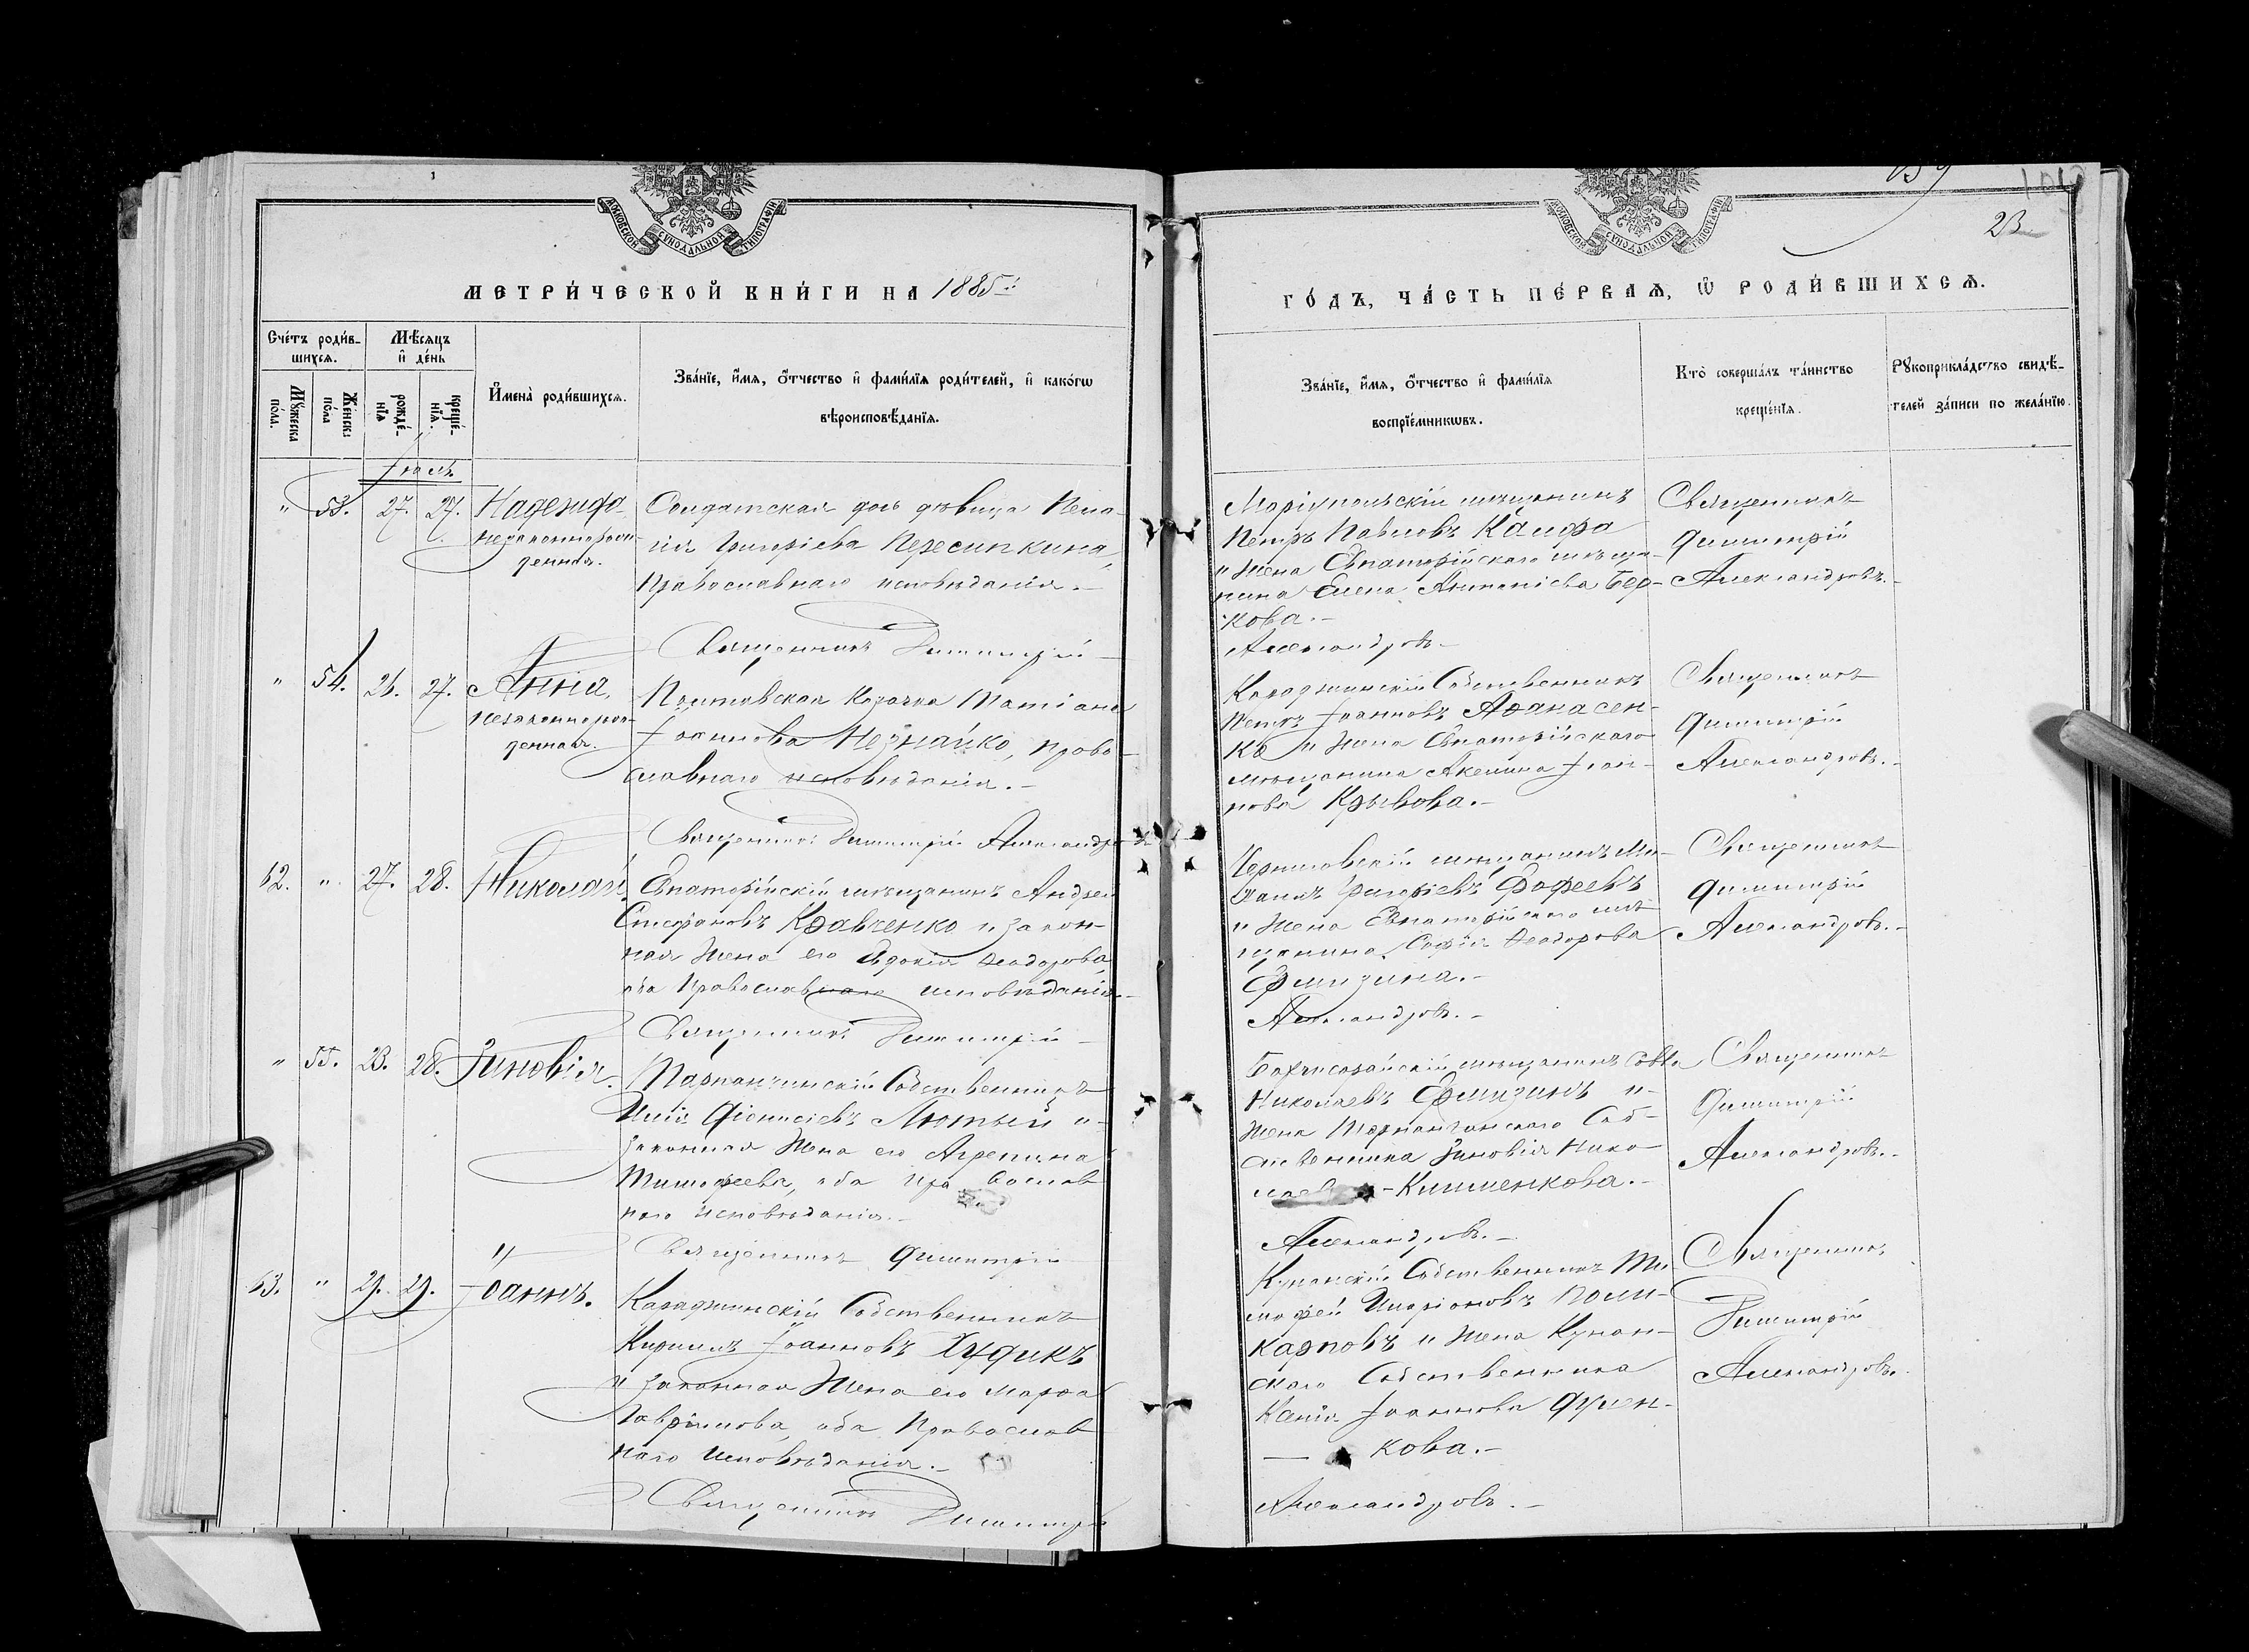 МОСКОВСКОЙ СѴНОДАЛЬНОЙ ТИПОГРАФІИ
МЕТРИ́ЧЕСКОЙ КНИ́ГИ НА 1885й
Сче́тъ роди́в-
шихсѧ.
Мѣ́сѧцъ
и҆ де́нь
Мꙋ́жеска
по́ла.
Же́нска
по́ла
рожде́-
нїѧ
креще́-
нїѧ.
И҆мена̀ роди́вшихсѧ.
Зва́нїе, и҆́мѧ, ѻ҆́тчество и҆ фами́лїѧ роди́телей, и҆ како́гѡ
вѣроисповѣ́данїѧ.
Іюль
" 53. 27. 27. Надежда
незаконнорож-
денная.
Солдатская дочь дѣвица Пела-
гія Григоріева Пересипкина,
Православнаго исповѣданія.-
Священникъ Димитрій
" 54. 26. 27. Анна,
незаконнорож-
денная.
Полтавская козачка Татіана
Іоакимова Незнайко, право-
славнаго исповѣданія.-
Священникъ Димитрій Александровъ
62. " 27. 28. Николай.
Евпаторійскій мѣщанинъ Андрей
Стефановъ Кравченко и закон-
ная жена его Евдокія Ѳеодорова,
оба Православнаго исповѣданія.-
Священникъ Димитрій
" 55. 23. 28. Зиновія.
Парпанчинскій Собственникъ
Илія Діонисіевъ Лютый и
законная жена его Агрепина
Тимофеева, оба Православ
наго исповѣданія.-
Священникъ Димитрій
63. " 29. 29. Іоаннъ.
Караджинскій Собственникъ
Кириллъ Іоанновъ Худикъ
и законная жена его Марѳа
Гавріилова, оба Православ
наго исповѣданія.-
Священникъ Димитрій
159
23
МОСКОВСКОЙ СѴНОДАЛЬНОЙ ТИПОГРАФІИ
ГО́ДЪ, ЧА́СТЬ ПЕ́РВАѦ, Ѿ РОДИ́ВШИХСѦ.
Зва́нїе, и҆́мѧ, ѻ҆́тчество и҆ фами́лїѧ
воспрїе́мникѡвъ.
Кто̀ соверша́лъ та́инство
креще́нїѧ.
Рꙋкоприкла́дство свидѣ́-
телей за́писи по жела́нїю.
Маріупольскій мѣщанинъ
Петръ Павловъ Калфа
и жена Евпаторійскаго мѣща-
нина Елена Антоніева Бер-
кова.-
Александровъ.-
Священникъ
Димитрій
Александровъ.-
Караджинскій Собственникъ
Петръ Іоанновъ Аѳанасен-
ко и жена Евпаторійскаго
мѣщанина Акилина Іоан-
нова Крывова.-
Священникъ
Димитрій
Александровъ.-
Черниговскій мѣщанинъ Ми-
хаилъ Григоріевъ Фофеевъ
и жена Евпаторійскаго мѣ-
щанина Софія Ѳеодорова
Ельзина.-
Александровъ.-
Священникъ
Димитрій
Александровъ.-
Бахчисарайскій мѣщанинъ Савва
Николаевъ Ельзинъ и
жена Парпанчинскаго Соб-
ственника Зиновія Нико-
лаева - Клименкова.-
Александровъ.-
Священникъ
Димитрій
Александровъ.-
Кунанскій Собственникъ Ти-
мофей Иларіоновъ Поли-
карповъ и жена Кунан-
скаго Собственника
Іоаннова Дулен-
кова.-
Александровъ.-
Священникъ
Димитрій
Александровъ.